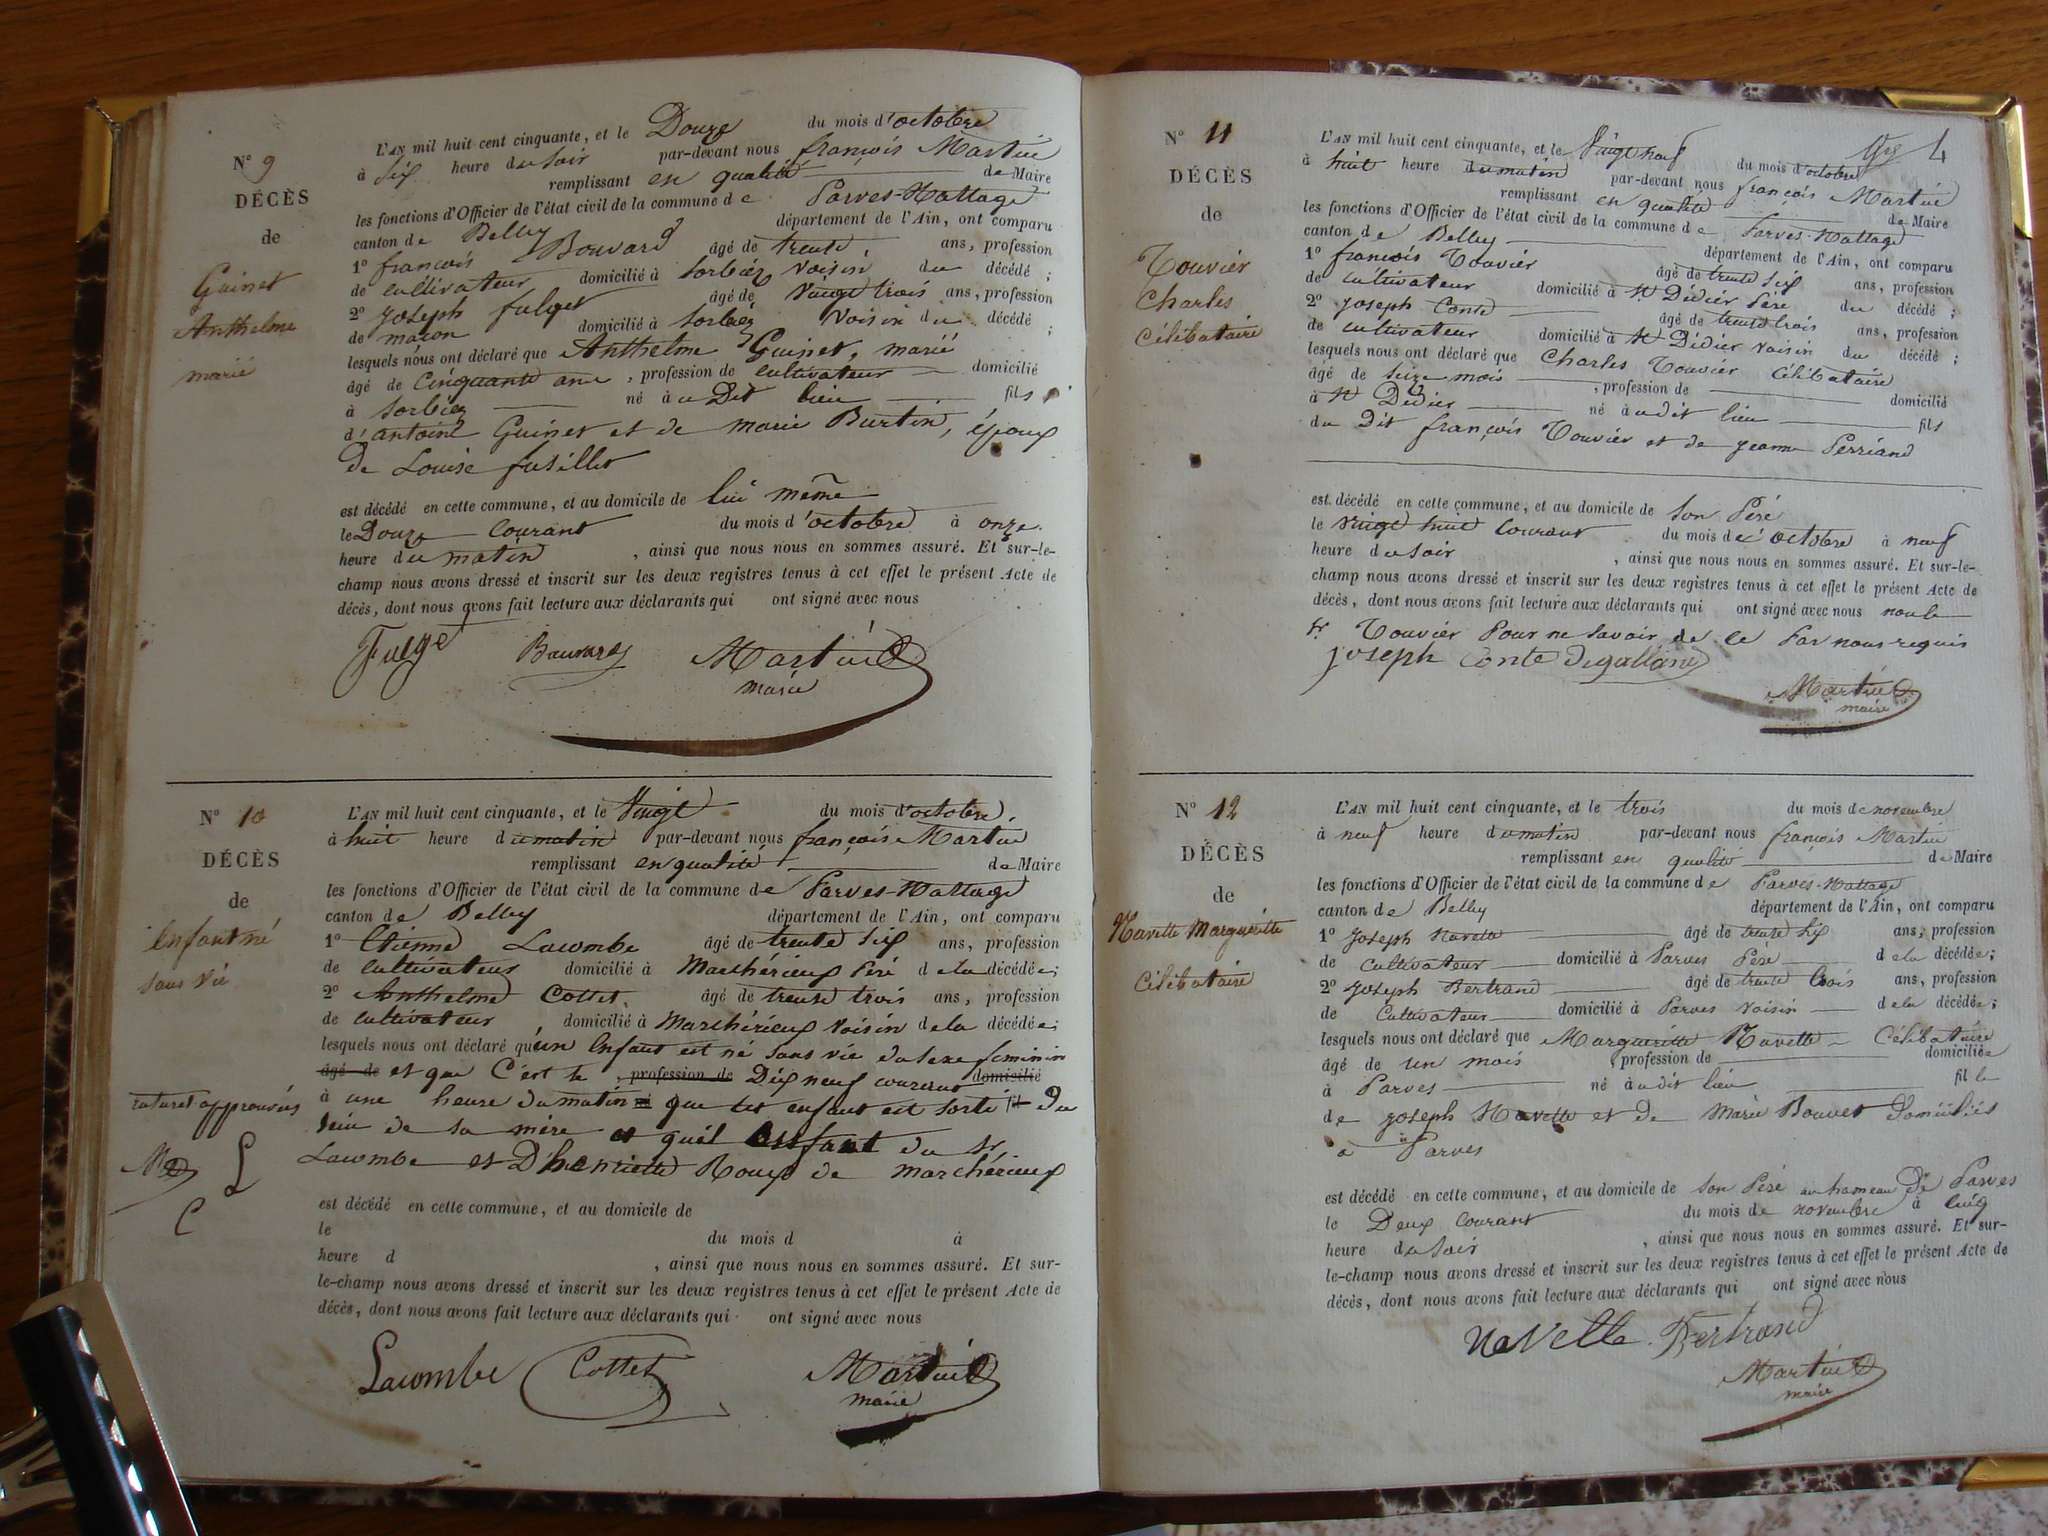 N° 9
DÉCÈS
de
Guinet
Anthelme
marié
L'AN mil huit cent cinquante, et le Douze du mois d'octobre
à six heure du soir par-devant nous françois Martin
remplissant en qualité de Maire
les fonctions d'Officier de l'état civil de la commune de Parves-Nattage
canton de Belley département de l'Ain, ont comparu
1° françois Bouvard âgé de trente ans, profession
de cultivateur domicilié à Sorbiez voisin du décédé ;
2° joseph fulget âgé de vingt trois ans, profession
de maçon domicilié à Sorbiez voisin du décédé ;
lesquels nous ont déclaré que Anthelme Guinet, marié
âgé de cinquante ans, profession de cultivateur domicilié
à Sorbiez né au Dit lieu fils
d'antoine Guinet et de marie Burtin, époux
De Louise fusillet
est décédé en cette commune, et au domicile de lui même
le Douze courant du mois d'octobre à onze
heure du matin, ainsi que nous nous en sommes assuré. Et sur-le-
champ nous avons dressé et inscrit sur les deux registres tenus à cet effet le présent Acte de
décès, dont nous avons fait lecture aux déclarants qui ont signé avec nous
Fulge Bauvard Martin
maire
N° 10
DÉCÈS
de
Enfant né
sans vie
L'AN mil huit cent cinquante, et le Vingt du mois d'octobre,
à huit heure du matin par-devant nous françois Martin
remplissant en qualité de Maire
les fonctions d'Officier de l'état civil de la commune de Parves-Nattage
canton de Belley département de l'Ain, ont comparu
1° Etienne Lacombe âgé de trente six ans, profession
de cultivateur domicilié à Marchérieux Péré de la décédée;
2° Anthelme Cottet, âgé de trente trois ans, profession
de cultivateur domicilié à Marchérieux voisin de la décédée;
lesquels nous ont déclaré qu'un Enfant est né sans vie du sexe feminin
âgé de et que C'est le profession de Dix neuf courant domicilié
à une heure du matin que cet enfant est sorti du
sein de sa mère et qu'él Enfant du Sr
Lacombe et D'henriette Roux de marchérieux
ratures approuvés
M
L
C
est décédé en cette commune, et au domicile de
le du mois d à
heure d , ainsi que nous nous en sommes assuré. Et sur-
le-champ nous avons dressé et inscrit sur les deux registres tenus à cet effet le présent Acte de
décès, dont nous avons fait lecture aux déclarants qui ont signé avec nous
Lacombe Cottet Martin
maire
4
N° 11
DÉCÈS
de
Touvier
Charles
Célibataire
L'AN mil huit cent cinquante, et le Vingt neuf du mois d'octobre
à huit heure du matin par-devant nous françois Martin
remplissant en qualité de Maire
les fonctions d'Officier de l'état civil de la commune de Parves-Nattage
canton de Belley département de l'Ain, ont comparu
1° françois Touvier âgé de trente six ans, profession
de cultivateur domicilié à St Didier Péré du décédé ;
2° joseph Conte âgé de trente trois ans, profession
de cultivateur domicilié à St Didier voisin du décédé ;
lesquels nous ont déclaré que Charles Touvier Célibataire
âgé de seize mois, profession de domicilié
à St Didier né au dit lieu fils
du Dit françois Touvier et de jeanne Perriand
est décédé en cette commune, et au domicile de son Péré
le vingt huit courant du mois d'octobre à neuf
heure du soir, ainsi que nous nous en sommes assuré. Et sur-le-
champ nous avons dressé et inscrit sur les deux registres tenus à cet effet le présent Acte de
décès, dont nous avons fait lecture aux déclarants qui ont signé avec nous non le
Sr Touvier Pour ne savoir de ce Par nous requis
joseph Conte Degalland
Martin
maire
N° 12
DÉCÈS
de
Navette Marguerite
Célibataire
L'AN mil huit cent cinquante, et le trois du mois de novembre
à neuf heure du matin par-devant nous françois Martin
remplissant en qualité de Maire
les fonctions d'Officier de l'état civil de la commune de Parves-Nattage
canton de Belley département de l'Ain, ont comparu
1° joseph Navette âgé de trente six ans, profession
de cultivateur domicilié à Parves Péré de la décédée;
2° joseph Bertrand âgé de trente trois ans, profession
de Cultivateur domicilié à Parves voisin de la décédée;
lesquels nous ont déclaré que Marguerite Navette Célibataire
âgé de un mois, profession de domiciliée
à Parves né au dit lieu fille
de joseph Navette et de marie Bouvet Domiciliés
à Parves
est décédé en cette commune, et au domicile de son Péré au hameau De Parves
le Deux courant du mois de novembre à cinq
heure du soir, ainsi que nous nous en sommes assuré. Et sur-
le-champ nous avons dressé et inscrit sur les deux registres tenus à cet effet le présent Acte de
décès, dont nous avons fait lecture aux déclarants qui ont signé avec nous
Navette Bertrand
Martin
maire